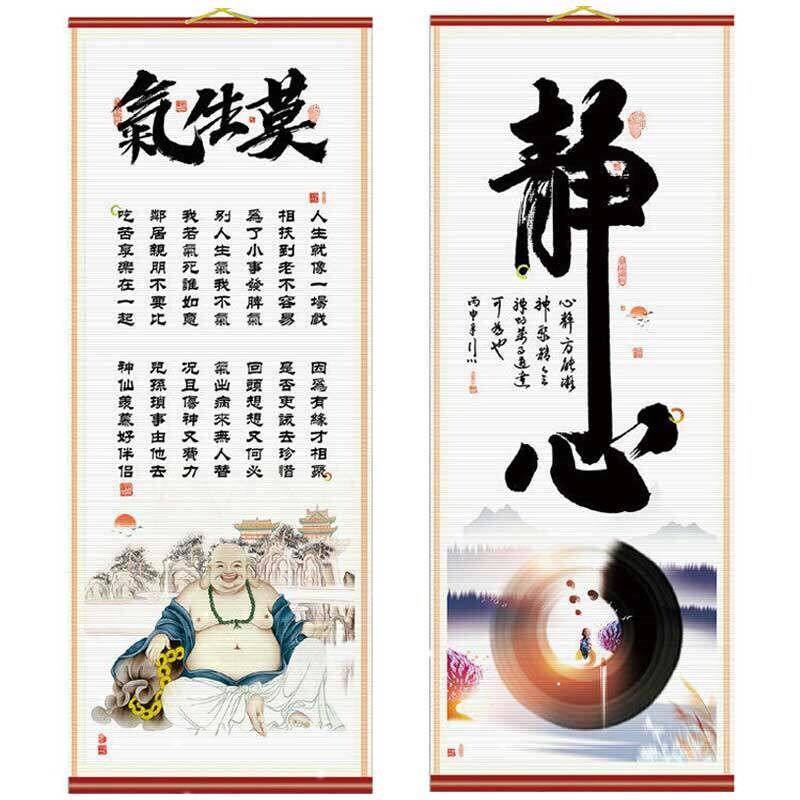 莫生氣
人生就像一場戲
因爲有緣才相聚
相扶到老不容易
是否更該去珍惜
爲了小事發脾氣
回頭想想又何必
別人生氣我不氣
氣出病來無人替
我若氣死誰如意
況且傷神又費力
鄰居親朋不要比
兒孫瑣事由他去
吃苦享樂在一起
神仙羨慕好伴侶
靜心
心靜方能凝
神聚精
可為也
丙申年